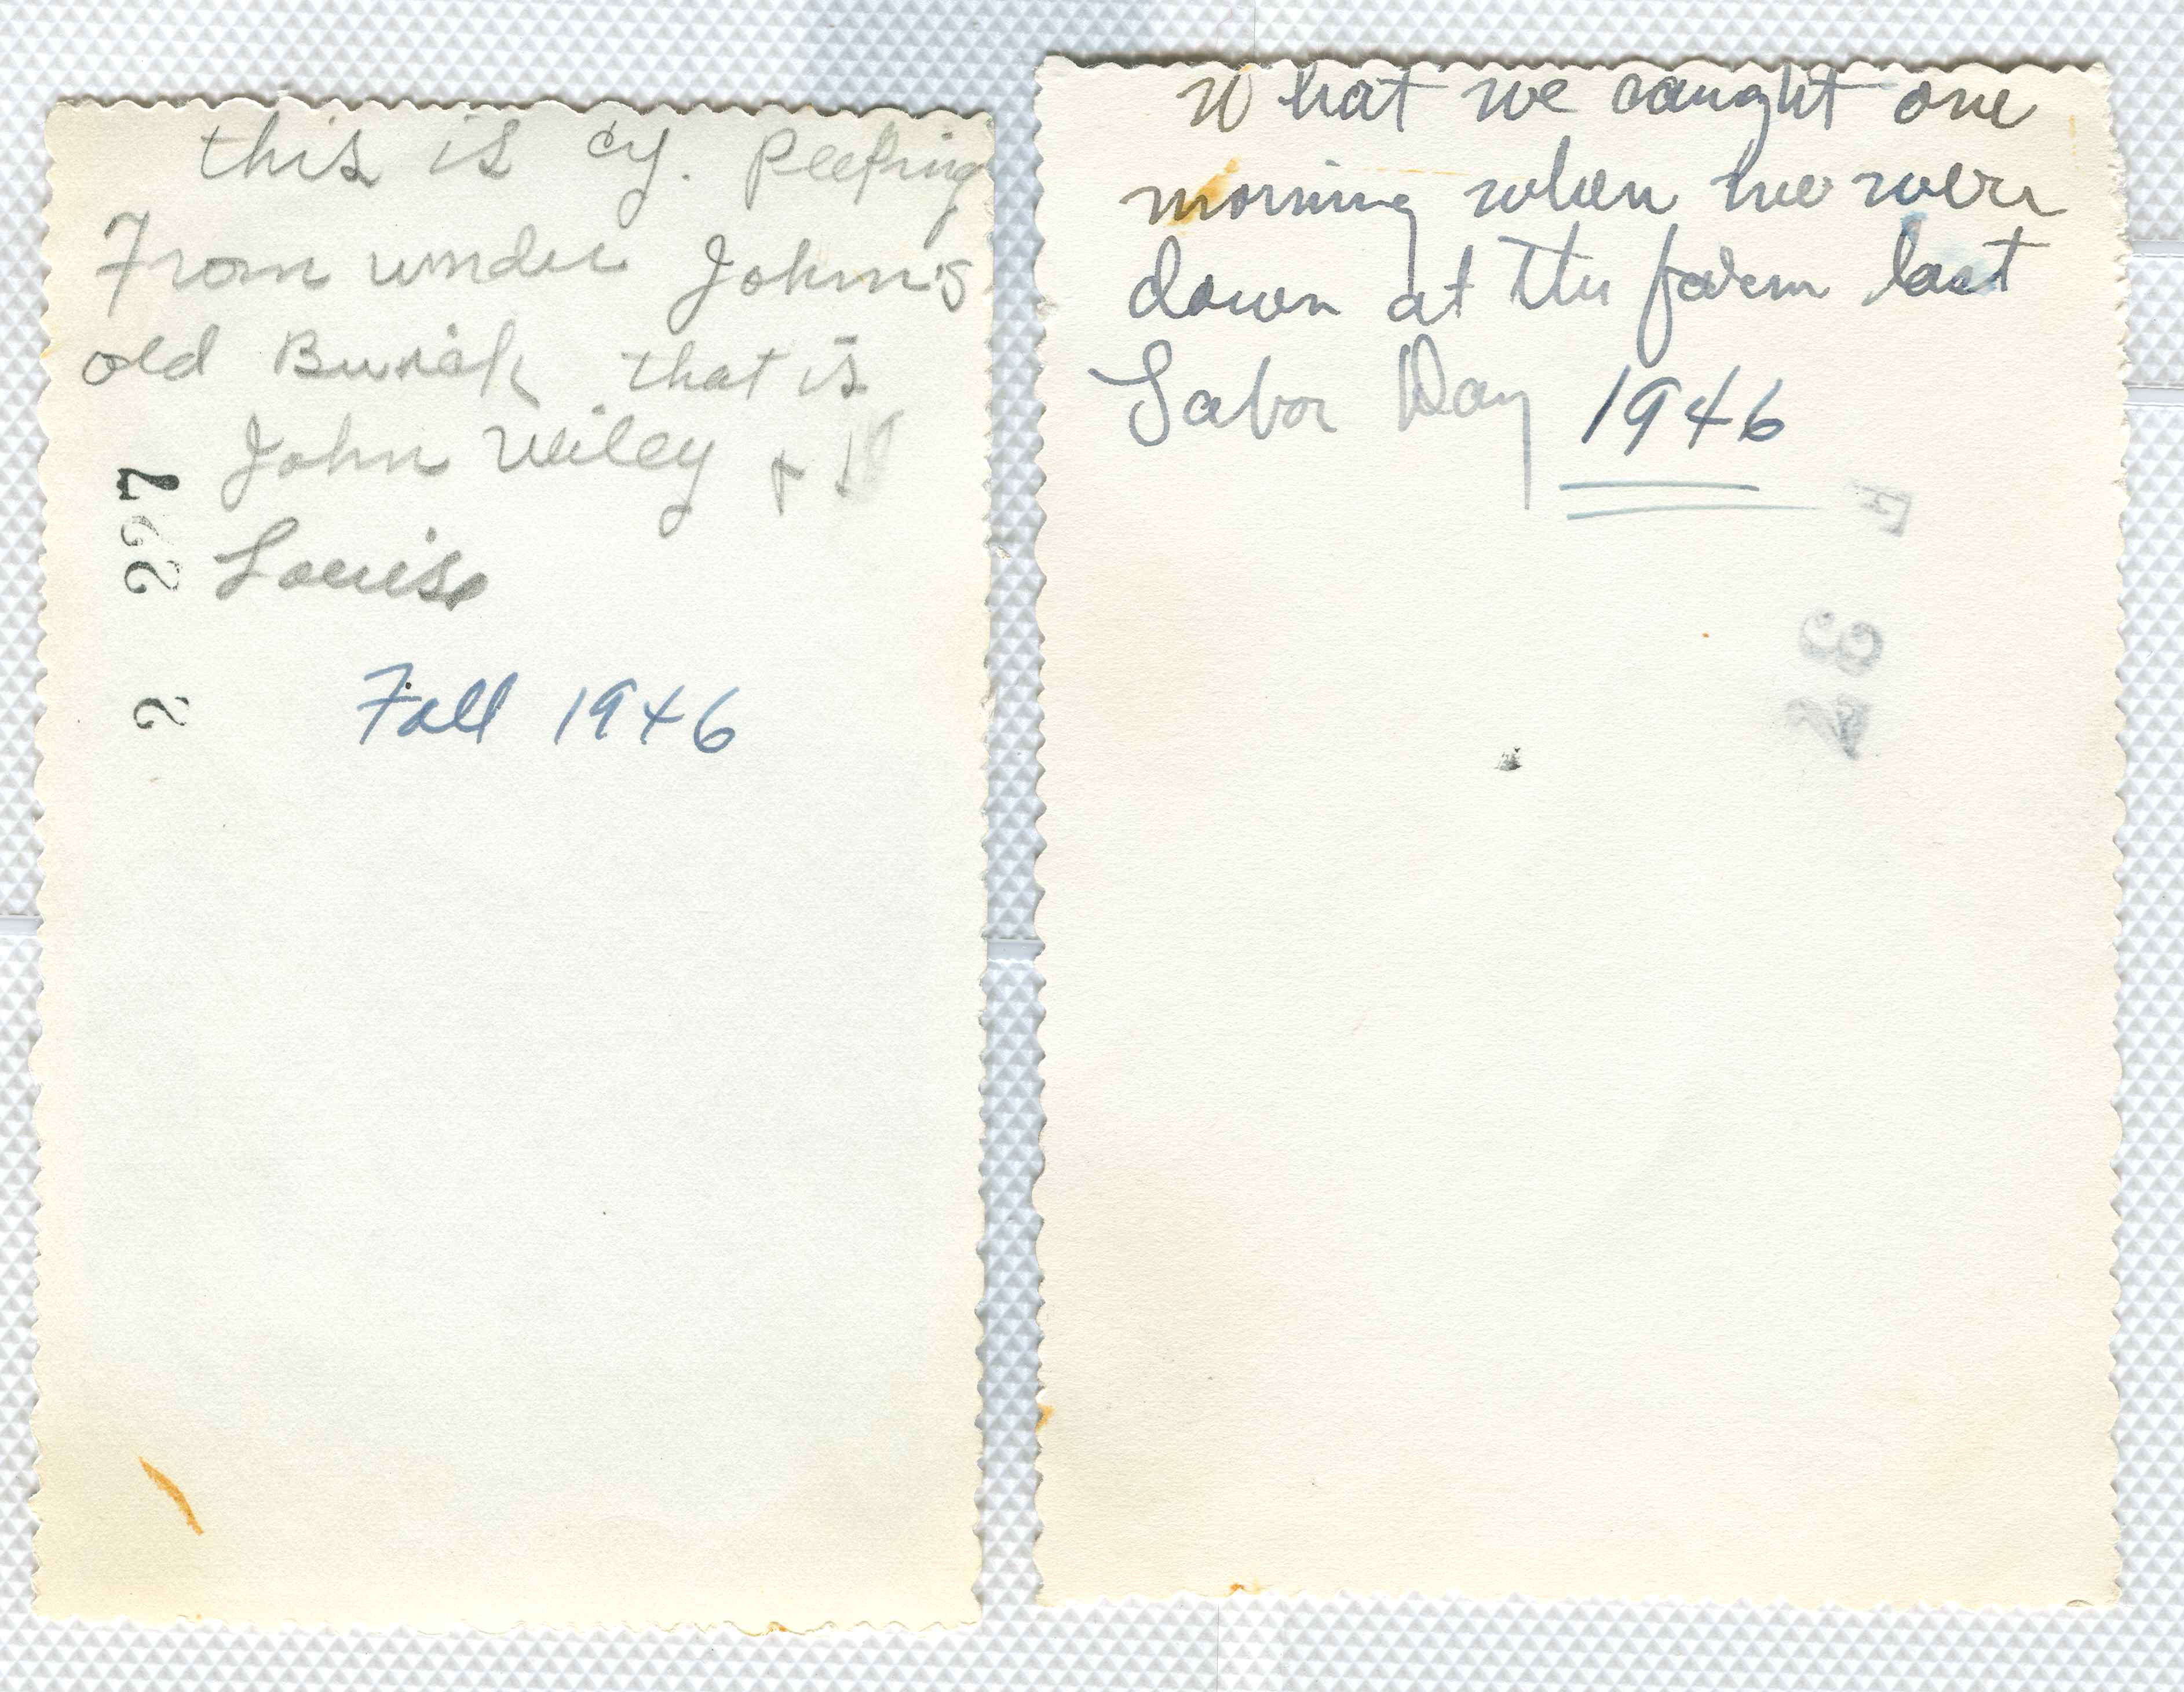 this is cy. Peeping
From under John's
old Buick that is
John Wiley +
Louise
Fall 1946
2 227
What we caught one
morning when we were
down at the farm last
Labor Day 1946